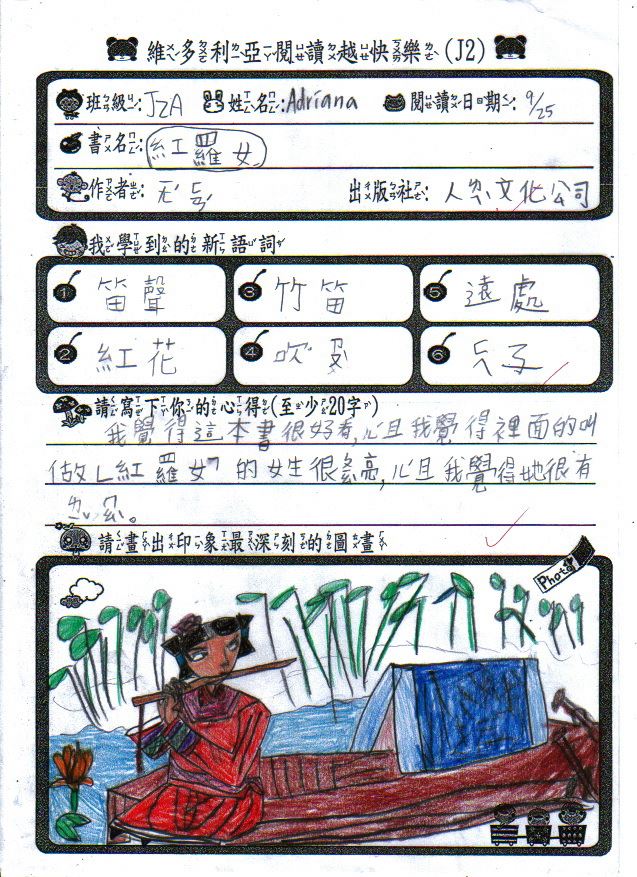 維多利亞閱讀越快樂(J2)
班級:J2A 姓名:Adriana 閱讀日期:9/25
書名:紅羅女
作者: 出版社:人 文化公司
我學到的新語詞
1 笛聲 3 竹笛 5 遠處
2 紅花 4 吹 6
請寫下你的心得(至少20字)
我覺得這本書很好看,ㄦ且我覺得裡面的叫
做「紅羅女」的女生很 亮,ㄦ且我覺得她很有
。
請畫出印象最深刻的圖畫
Photo